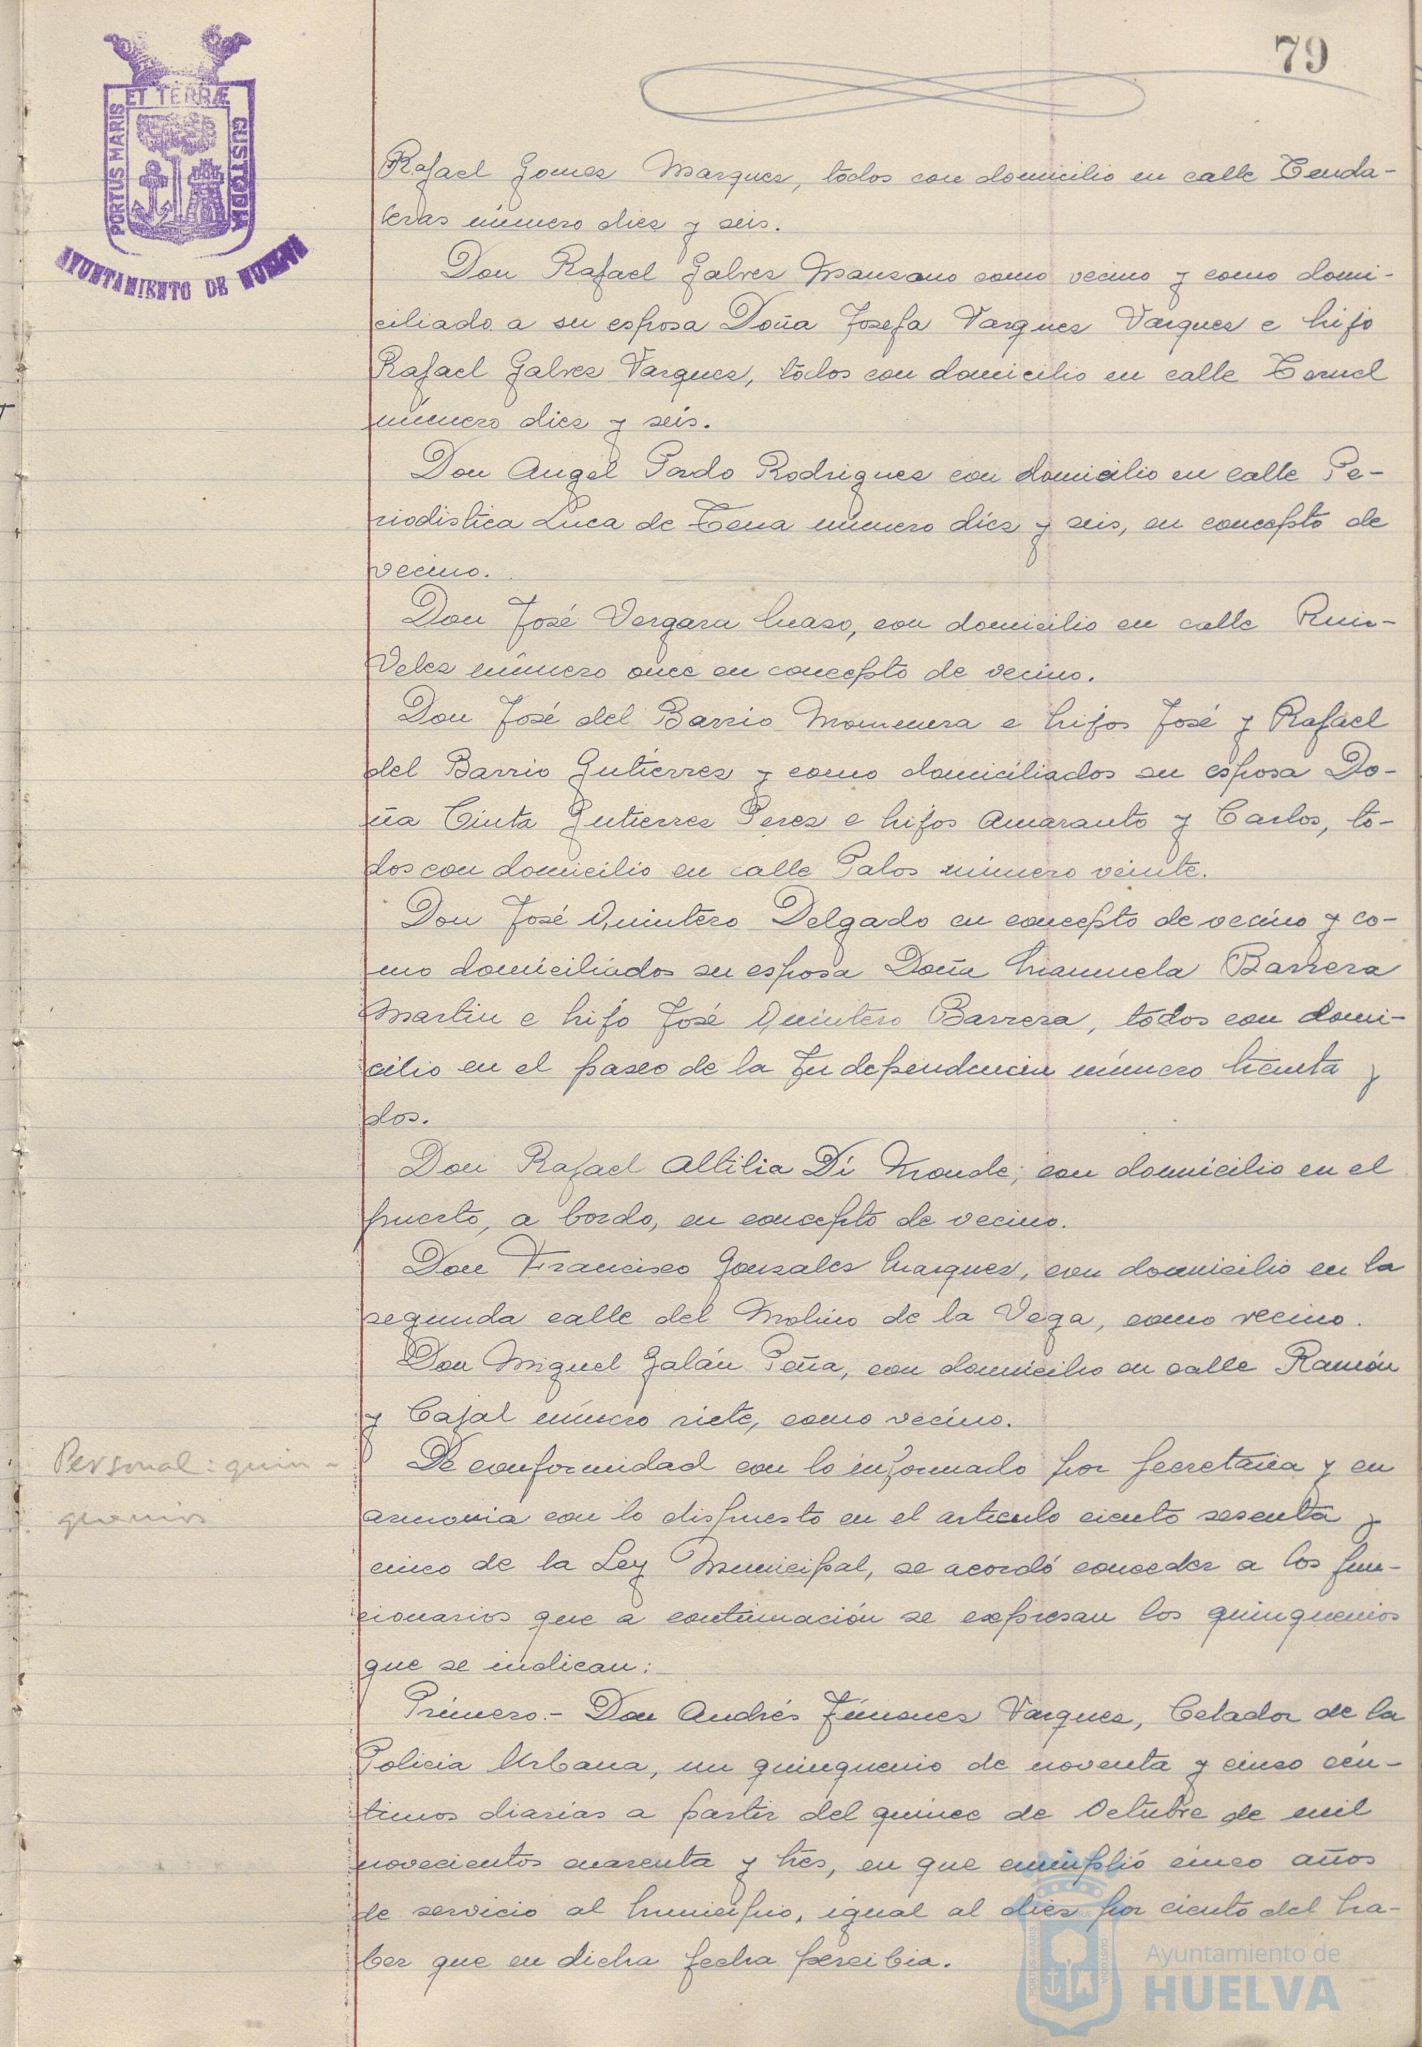 79
PORTUS MARIS ET TERRÆ CUSTODIA
AYUNTAMIENTO DE HUELVA
Rafael Gomez Marquez, todos con domicilio en calle Tenda-
leras número diez y seis.
Don Rafael Galvez Manzano como vecino y como domi-
ciliado a su esposa Doña Josefa Vazquez Vazquez e hijo
Rafael Galvez Vazquez, todos con domicilio en calle Teruel
número diez y seis.
Don Angel Pardo Rodriguez con domicilio en calle Pe-
riodistica Luca de Tena número diez y seis, en concepto de
vecino.
Don José Vergara, con domicilio en calle
Velez número once en concepto de vecino.
Don José del Barrio e hijos José y Rafael
del Barrio Gutiérrez y como domiciliados su esposa Do-
ña Cinta Gutierrez Perez e hijos Amaranto y Carlos, to-
dos con domicilio en calle Palos número veinte.
Don José Quintero Delgado en concepto de vecino y co-
mo domiciliados su esposa Doña Manuela Barrera
Martin e hijo José Quintero Barrera, todos con domi-
cilio en el paseo de la Independencia número treinta y
dos.
Don Rafael Altilia Di, con domicilio en el
puerto, a bordo, en concepto de vecino.
Don Francisco Gonzalez Marquez, con domicilio en la
segunda calle del Molino de la Vega, como vecino.
Don Miguel Galán Peña, con domicilio en calle Ramón
y Cajal número siete, como vecino.
Personal: quin-
quenios
De conformidad con lo informado por Secretaria y en
armonia con lo dispuesto en el articulo ciento sesenta y
cinco de la Ley Municipal, se acordó conceder a los fun-
cionarios que a continuación se expresan los quinquenios
que se indican:
Primero.- Don Andrés Jimenez Vazquez, Celador de la
Policia Urbana, un quinquenio de noventa y cinco cén-
timos diarias a partir del quince de Octubre de mil
novecientos cuarenta y tres, en que cumplió cinco años
de servicio al Municipio, igual al diez por ciento del ha-
ber que en dicha fecha percibia.
Ayuntamiento de
HUELVA